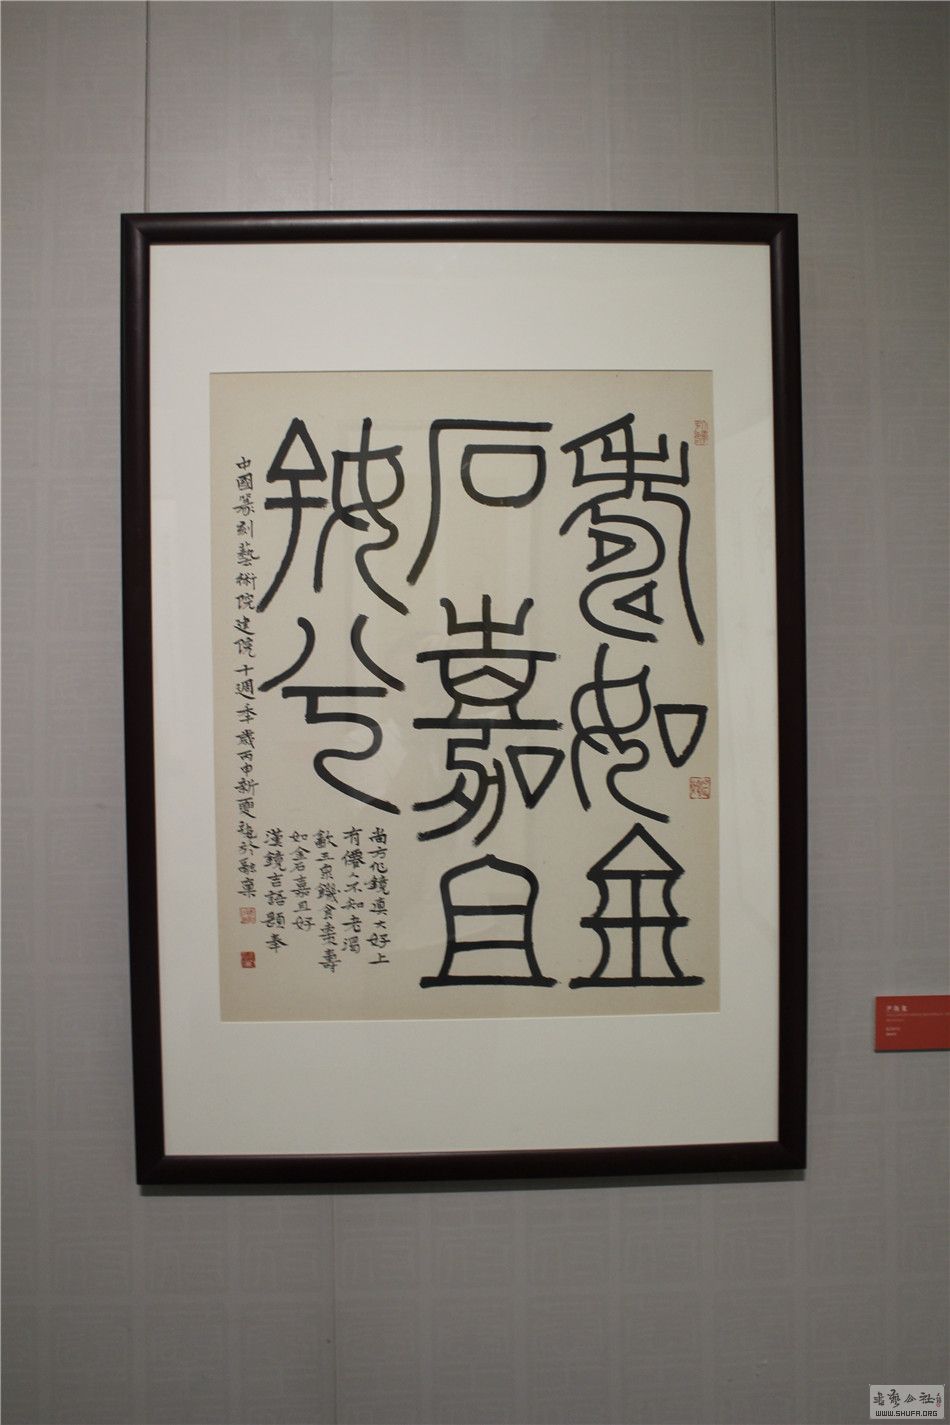 壽如金
石嘉且
好兮
尚方作鏡真大好上
有僊人不知老渴
飲玉泉饑食棗壽
如金石嘉且好
漢鏡吉語題奉
中國篆刻藝術院建院十週年歲丙申新夏
书艺公社
WWW.SHUFA.ORG